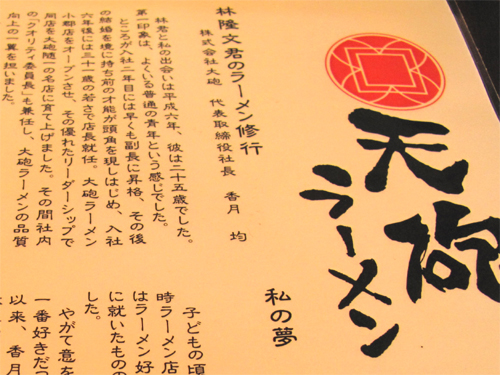 天砲
ラーメン
林隆文君のラーメン修行
株式会社大砲 代表取締役社長 香月 均
林君と私の出会いは平成六年、彼は二十五歳でした。
第一印象は、よくいる普通の青年という感じでした。
ところが入社二年目には早くも副長に昇格、その後
の結婚を境に持ち前の才能が頭角を現しはじめ、入社
六年後には三十一歳の若さで店長就任。大砲ラーメン
小郡店をオープンさせ、その優れたリーダーシップで
同店を大砲随一の名店に育て上げました。その間社内
の「クオリティ委員長」も兼任し、大砲ラーメンの品質
向上の一翼を担いました。
私の夢
子どもの頃
時ラーメン店
はラーメン好
に就いたものの
した。
やがて意を
一番好きだっ
以来、香月